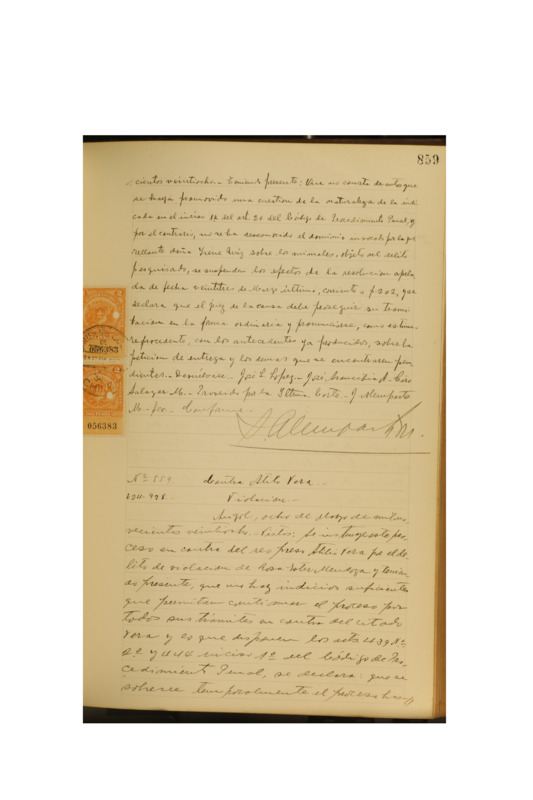 859
cientos veintiocho.- Teniendo presente: Que no consta de autos que
se haya promovido una cuestion de la naturaleza de la indi
cada en el inciso 1º del art. 20 del Código de Procedimiento Penal, y
por el contrario, no se ha desconocido el dominio invocado por la que
rellante doña Irene Ruiz sobre los animales, objeto del delito
pesquisado, se suspenden los efectos de la resolucion apela
da de fecha veintitres de Marzo último, corriente a f. 202, y se
declara que el juez de la causa debe proseguir su trami
tacion en la forma ordinaria y pronunciarse, como estime
procedente, con los antecedentes ya producidos, sobre la
peticion de entrega y los demas que se encontraren pen
dientes.- Devuélvase.- José L. Lopez.- José Francisco
Salazar M.- Proveido por la Iltma. Corte.- J. Alemparte
M.- sec.- Conforme.-
J Alemparte M.
056383
056383
Nº 559 Contra Atilo Vera.-
Violacion.-
Angol, ocho de Mayo de mil no
vecientos veintiocho.- Vistos: Se instruye este pro
ceso en contra del reo preso Atilo Vera por el de
lito de violacion de Rosa Soto Mendoza y tenien
do presente, que no hay indicios suficientes
que permitan continuar el proceso por
todos sus trámites en contra del citado
Vera y lo que disponen los arts 439 Nº
2º y 444 inciso 1º del Código de Pro
cedimiento Penal, se declara: que se
sobresee temporalmente el proceso